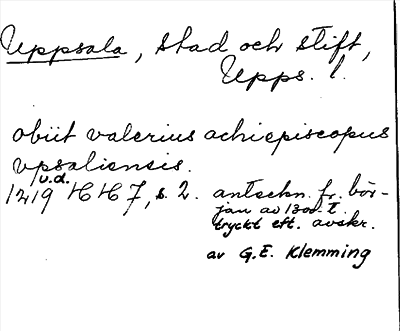 Uppsala, stad och stift,
Upps. l.
obiit valerius achiepiscopus
vpsaliensis.
u.d.
1219 HH 7, s. 2. antechn. fr. bör-
jan av 1300-t.
tryckt eft. avskr.
av G.E. Klemming